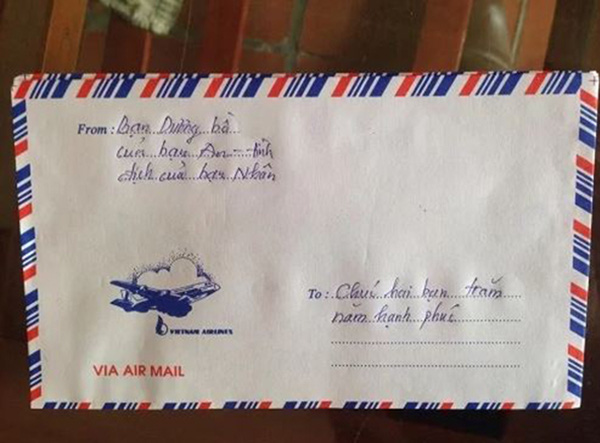 From : Bạn Dương bồ
của bạn An - tình
địch của bạn Nhân
VIETNAM AIRLINES
To : Chúc hai bạn trăm
năm hạnh phúc
VIA AIR MAIL